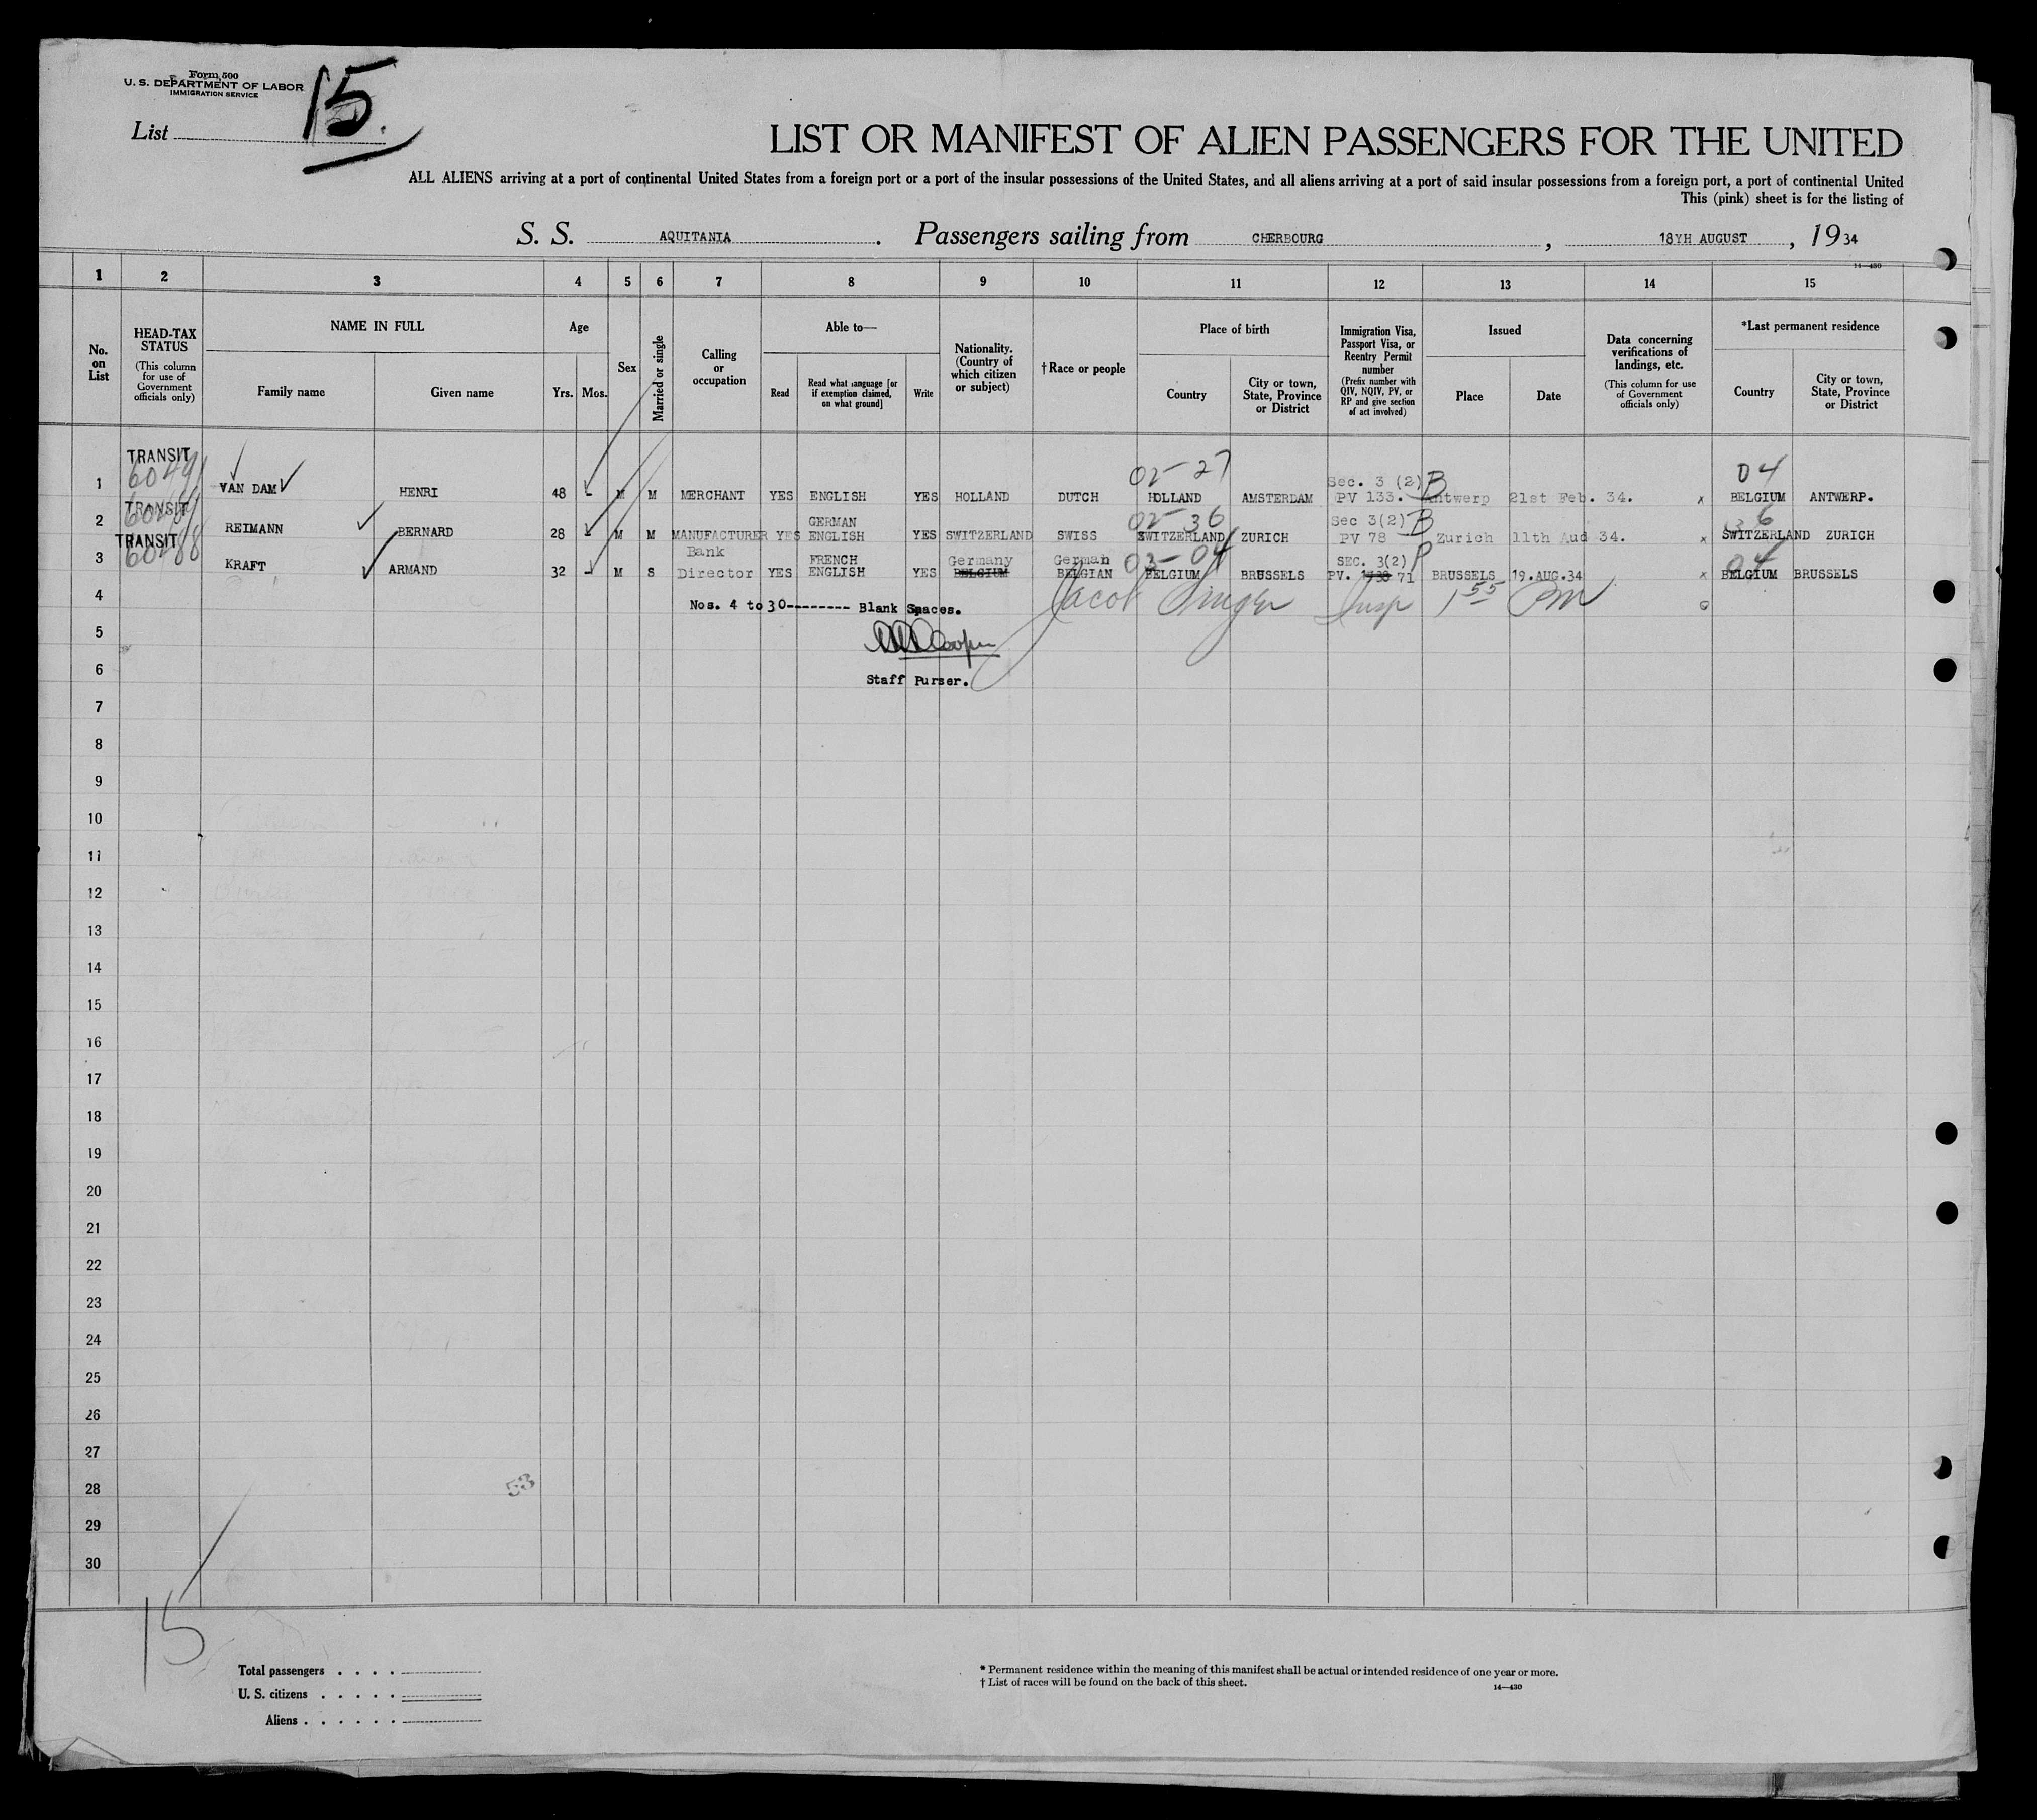 Form 500
U. S. DEPARTMENT OF LABOR
IMMIGRATION SERVICE
List 15.
LIST OR MANIFEST OF ALIEN PASSENGERS FOR THE UNITED
ALL ALIENS arriving at a port of continental United States from a foreign port or a port of the insular possessions of the United States, and all aliens arriving at a port of said insular possessions from a foreign port, a port of continental United
This (pink) sheet is for the listing of
S. S. AQUITANIA . Passengers sailing from CHERBOURG , 18YH AUGUST , 19 34
14—430
1 2 3 4 5 6 7 8 9 10 11 12 13 14 15
No. on List
HEAD-TAX STATUS (This column for use of Government officials only)
NAME IN FULL
Family name Given name
Age
Yrs. Mos.
Sex
Married or single
Calling or occupation
Able to—
Read Read what language [or if exemption claimed, on what ground] Write
Nationality. (Country of which citizen or subject)
†Race or people
Place of birth
Country City or town, State, Province or District
Immigration Visa, Passport Visa, or Reentry Permit number (Prefix number with QIV, NQIV, PV, or RP and give section of act involved)
Issued
Place Date
Data concerning verifications of landings, etc. (This column for use of Government officials only)
*Last permanent residence
Country City or town, State, Province or District
TRANSIT 02-27 Sec. 3 (2) B 04
1 VAN DAM HENRI 48 - M M MERCHANT YES ENGLISH YES HOLLAND DUTCH HOLLAND AMSTERDAM PV 133. Antwerp 21st Feb. 34. x BELGIUM ANTWERP.
TRANSIT GERMAN 02 36 Sec 3(2) B 36
2 REIMANN BERNARD 28 - M M MANUFACTURER YES ENGLISH YES SWITZERLAND SWISS SWITZERLAND ZURICH PV 78 Zurich 11th Aug 34. x SWITZERLAND ZURICH
TRANSIT 60488 Bank FRENCH Germany German 03-04 SEC. 3(2) P 04
3 KRAFT ARMAND 32 - M S Director YES ENGLISH YES BELGIUM BELGIAN BELGIUM BRUSSELS PV. 71 BRUSSELS 19.AUG.34 x BELGIUM BRUSSELS
4 Nos. 4 to 30-------- Blank Spaces. Jacob Singer Insp 1 55 Pm
5 Cooper
6 Staff Purser.
7
8
9
10
11
12
13
14
15
16
17
18
19
20
21
22
23
24
25
26
27
28 53
29
30
15
Total passengers . . . .
U. S. citizens . . . . .
Aliens . . . . . .
* Permanent residence within the meaning of this manifest shall be actual or intended residence of one year or more.
† List of races will be found on the back of this sheet.
14—430